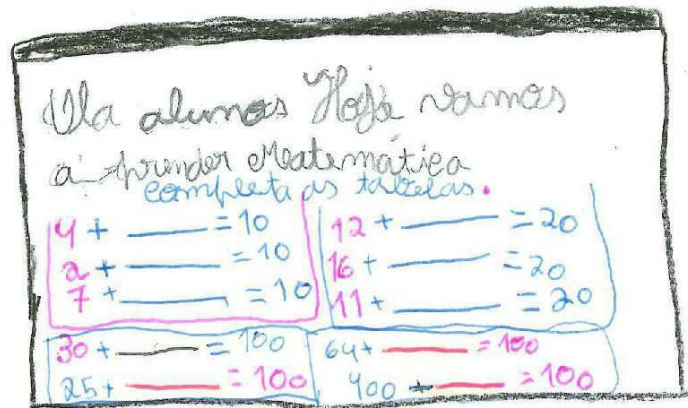 Ola alunos Hoje vamos
a Aprender Matemática
completa as tabelas.
4 + ____ = 10
2 + ____ = 10
7 + ____ = 10
12 + ____ = 20
16 + ____ = 20
11 + ____ = 20
30 + ____ = 100
25 + ____ = 100
64 + ____ = 100
400 + ____ = 100